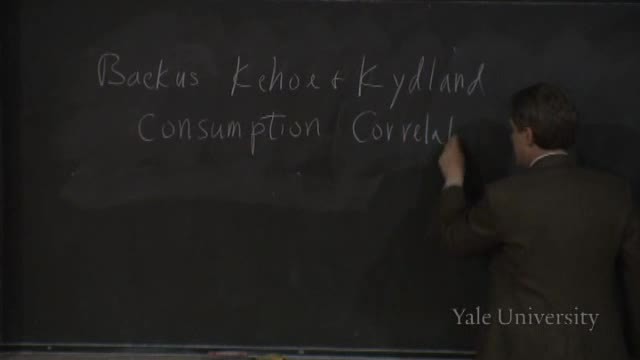 Backus Kehoe + Kydland
Consumption Correlat
Yale University